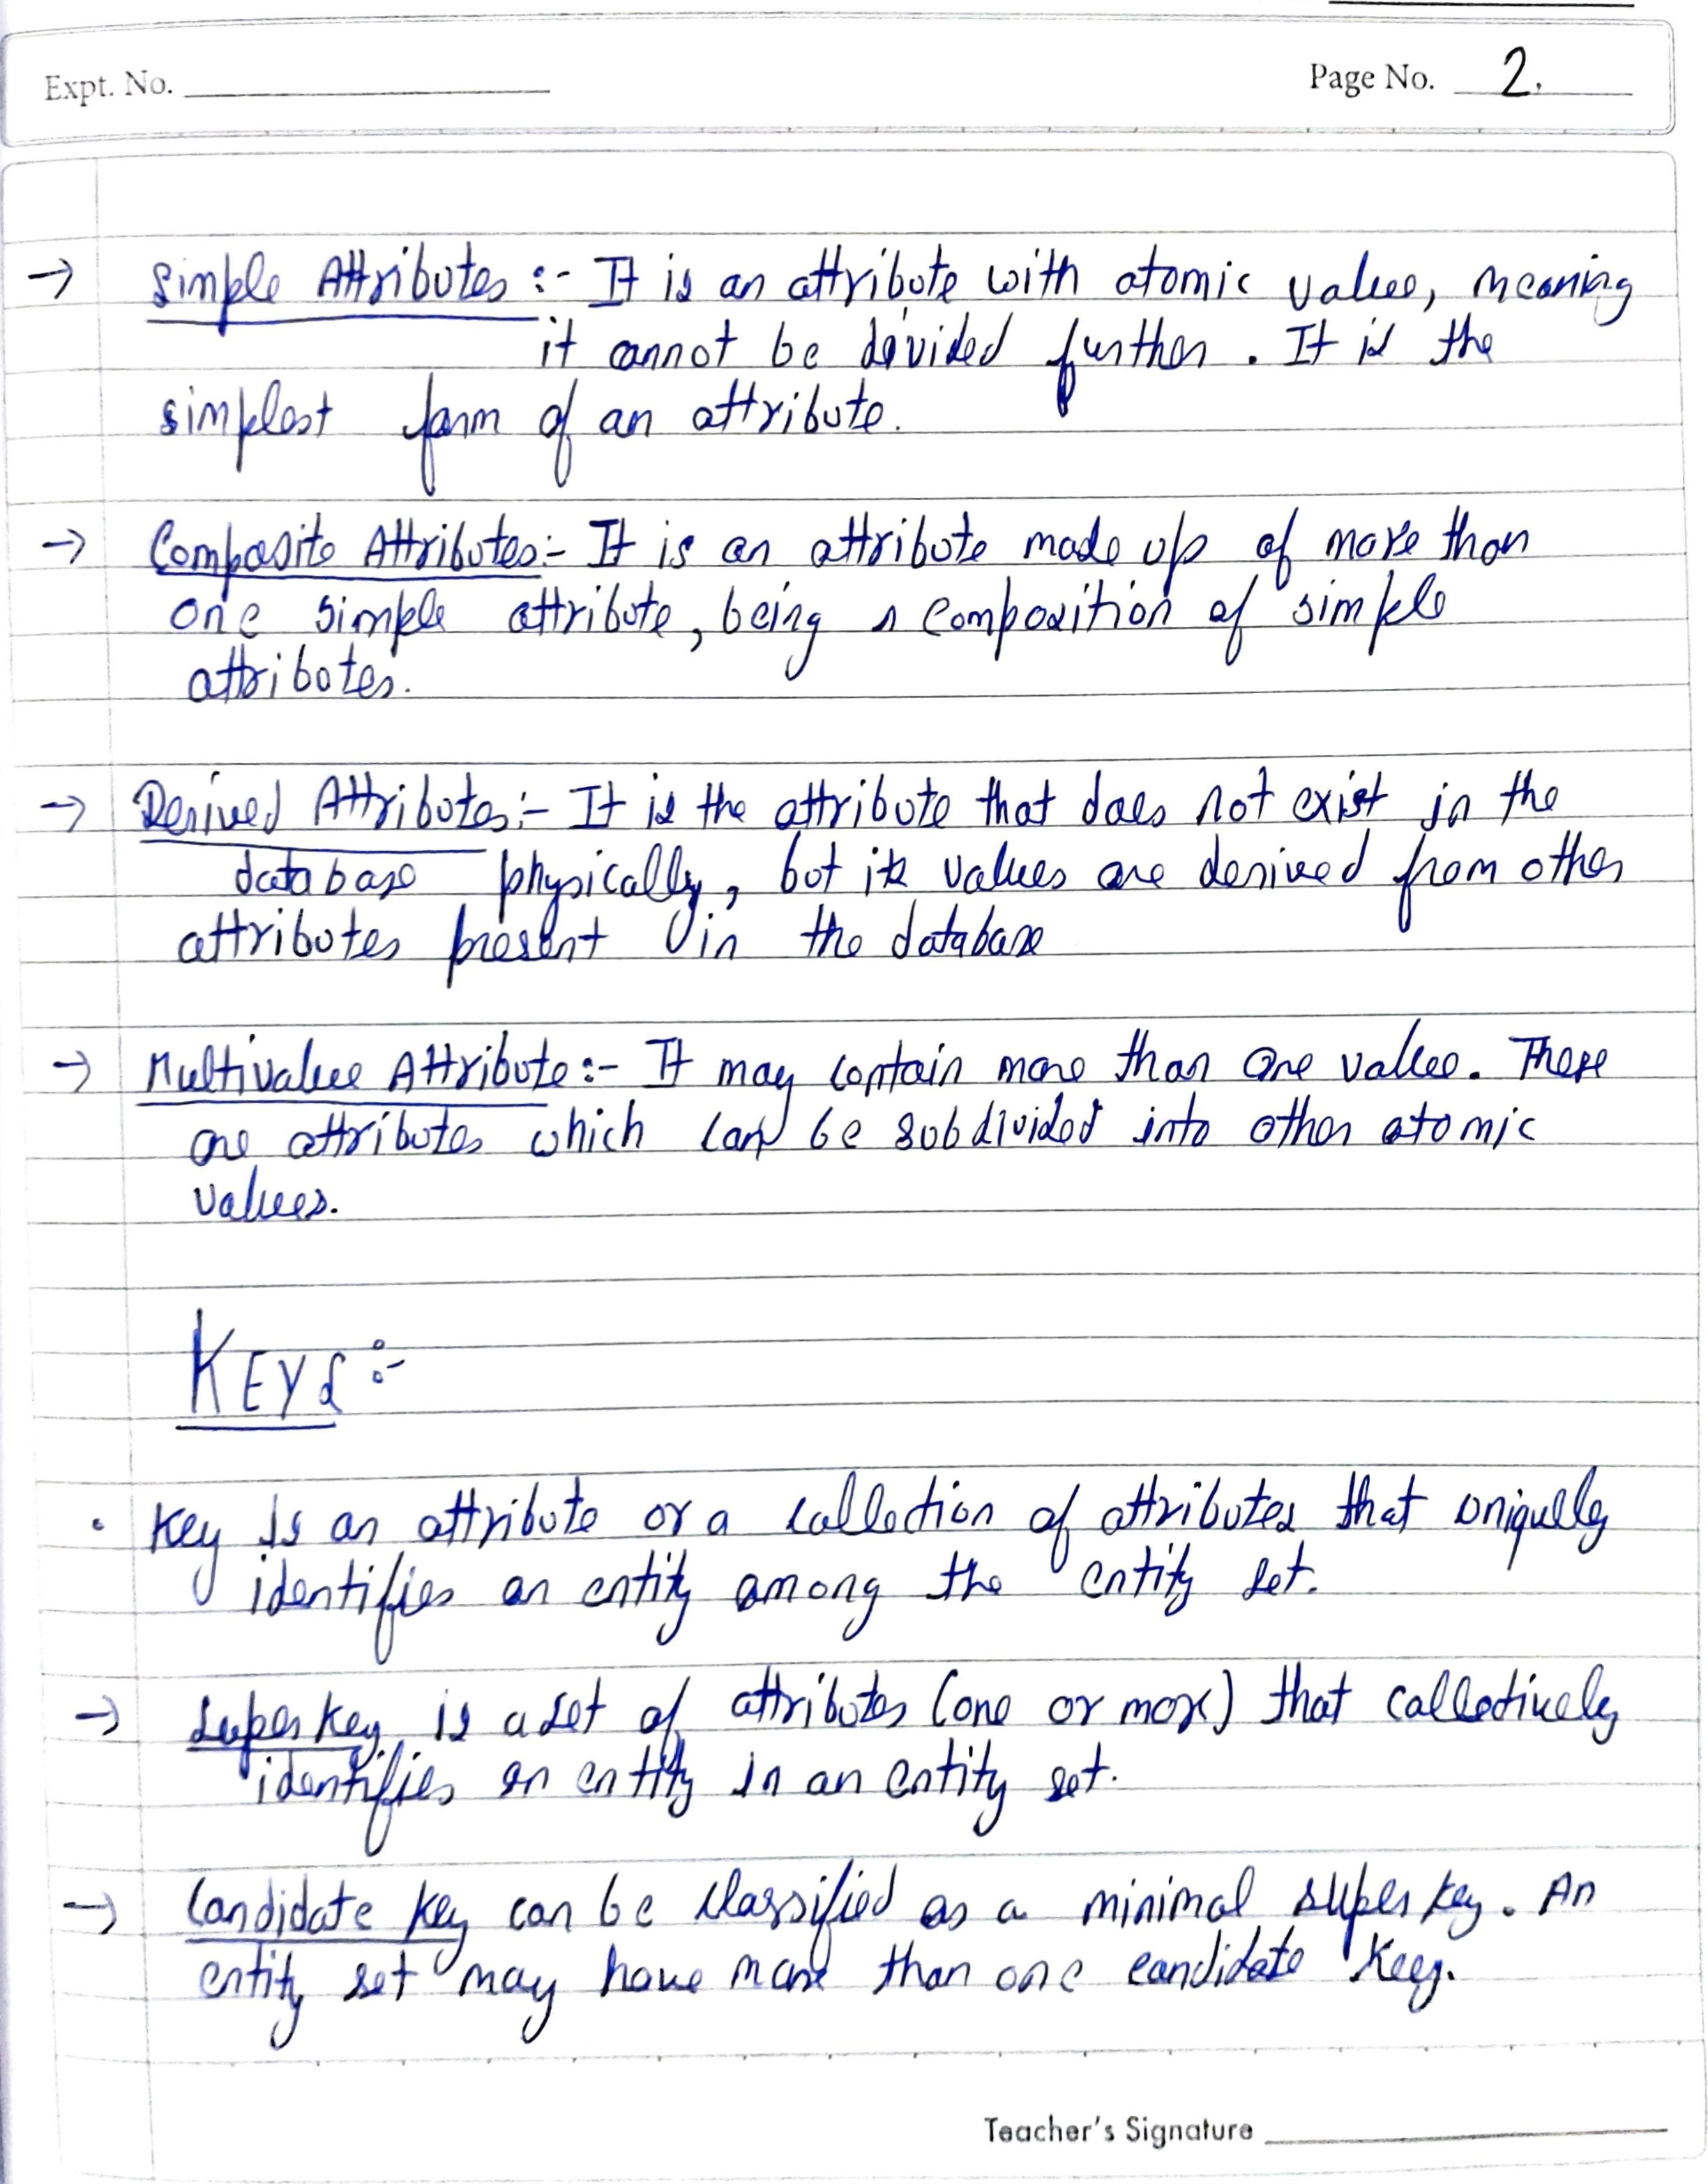 Expt. No.
Page No. 2.
→ Simple Attributes :- It is an attribute with atomic value, meaning
it cannot be divided further. It is the
simplest form of an attribute.
→ Composite Attributes:- It is an attribute made up of more than
one simple attribute, being a composition of simple
attributes.
→ Derived Attributes:- It is the attribute that does not exist in the
database physically, but its values are derived from other
attributes present in the database
→ Multivalue Attribute:- It may contain more than one value. These
are attributes which can be subdivided into other atomic
values.
KEYS :-
• Key is an attribute or a collection of attributes that uniquely
identifies an entity among the entity set.
→ Super key is a set of attributes (one or more) that collectively
identifies an entity in an entity set.
→ Candidate key can be classified as a minimal super key. An
entity set may have more than one candidate key.
Teacher's Signature